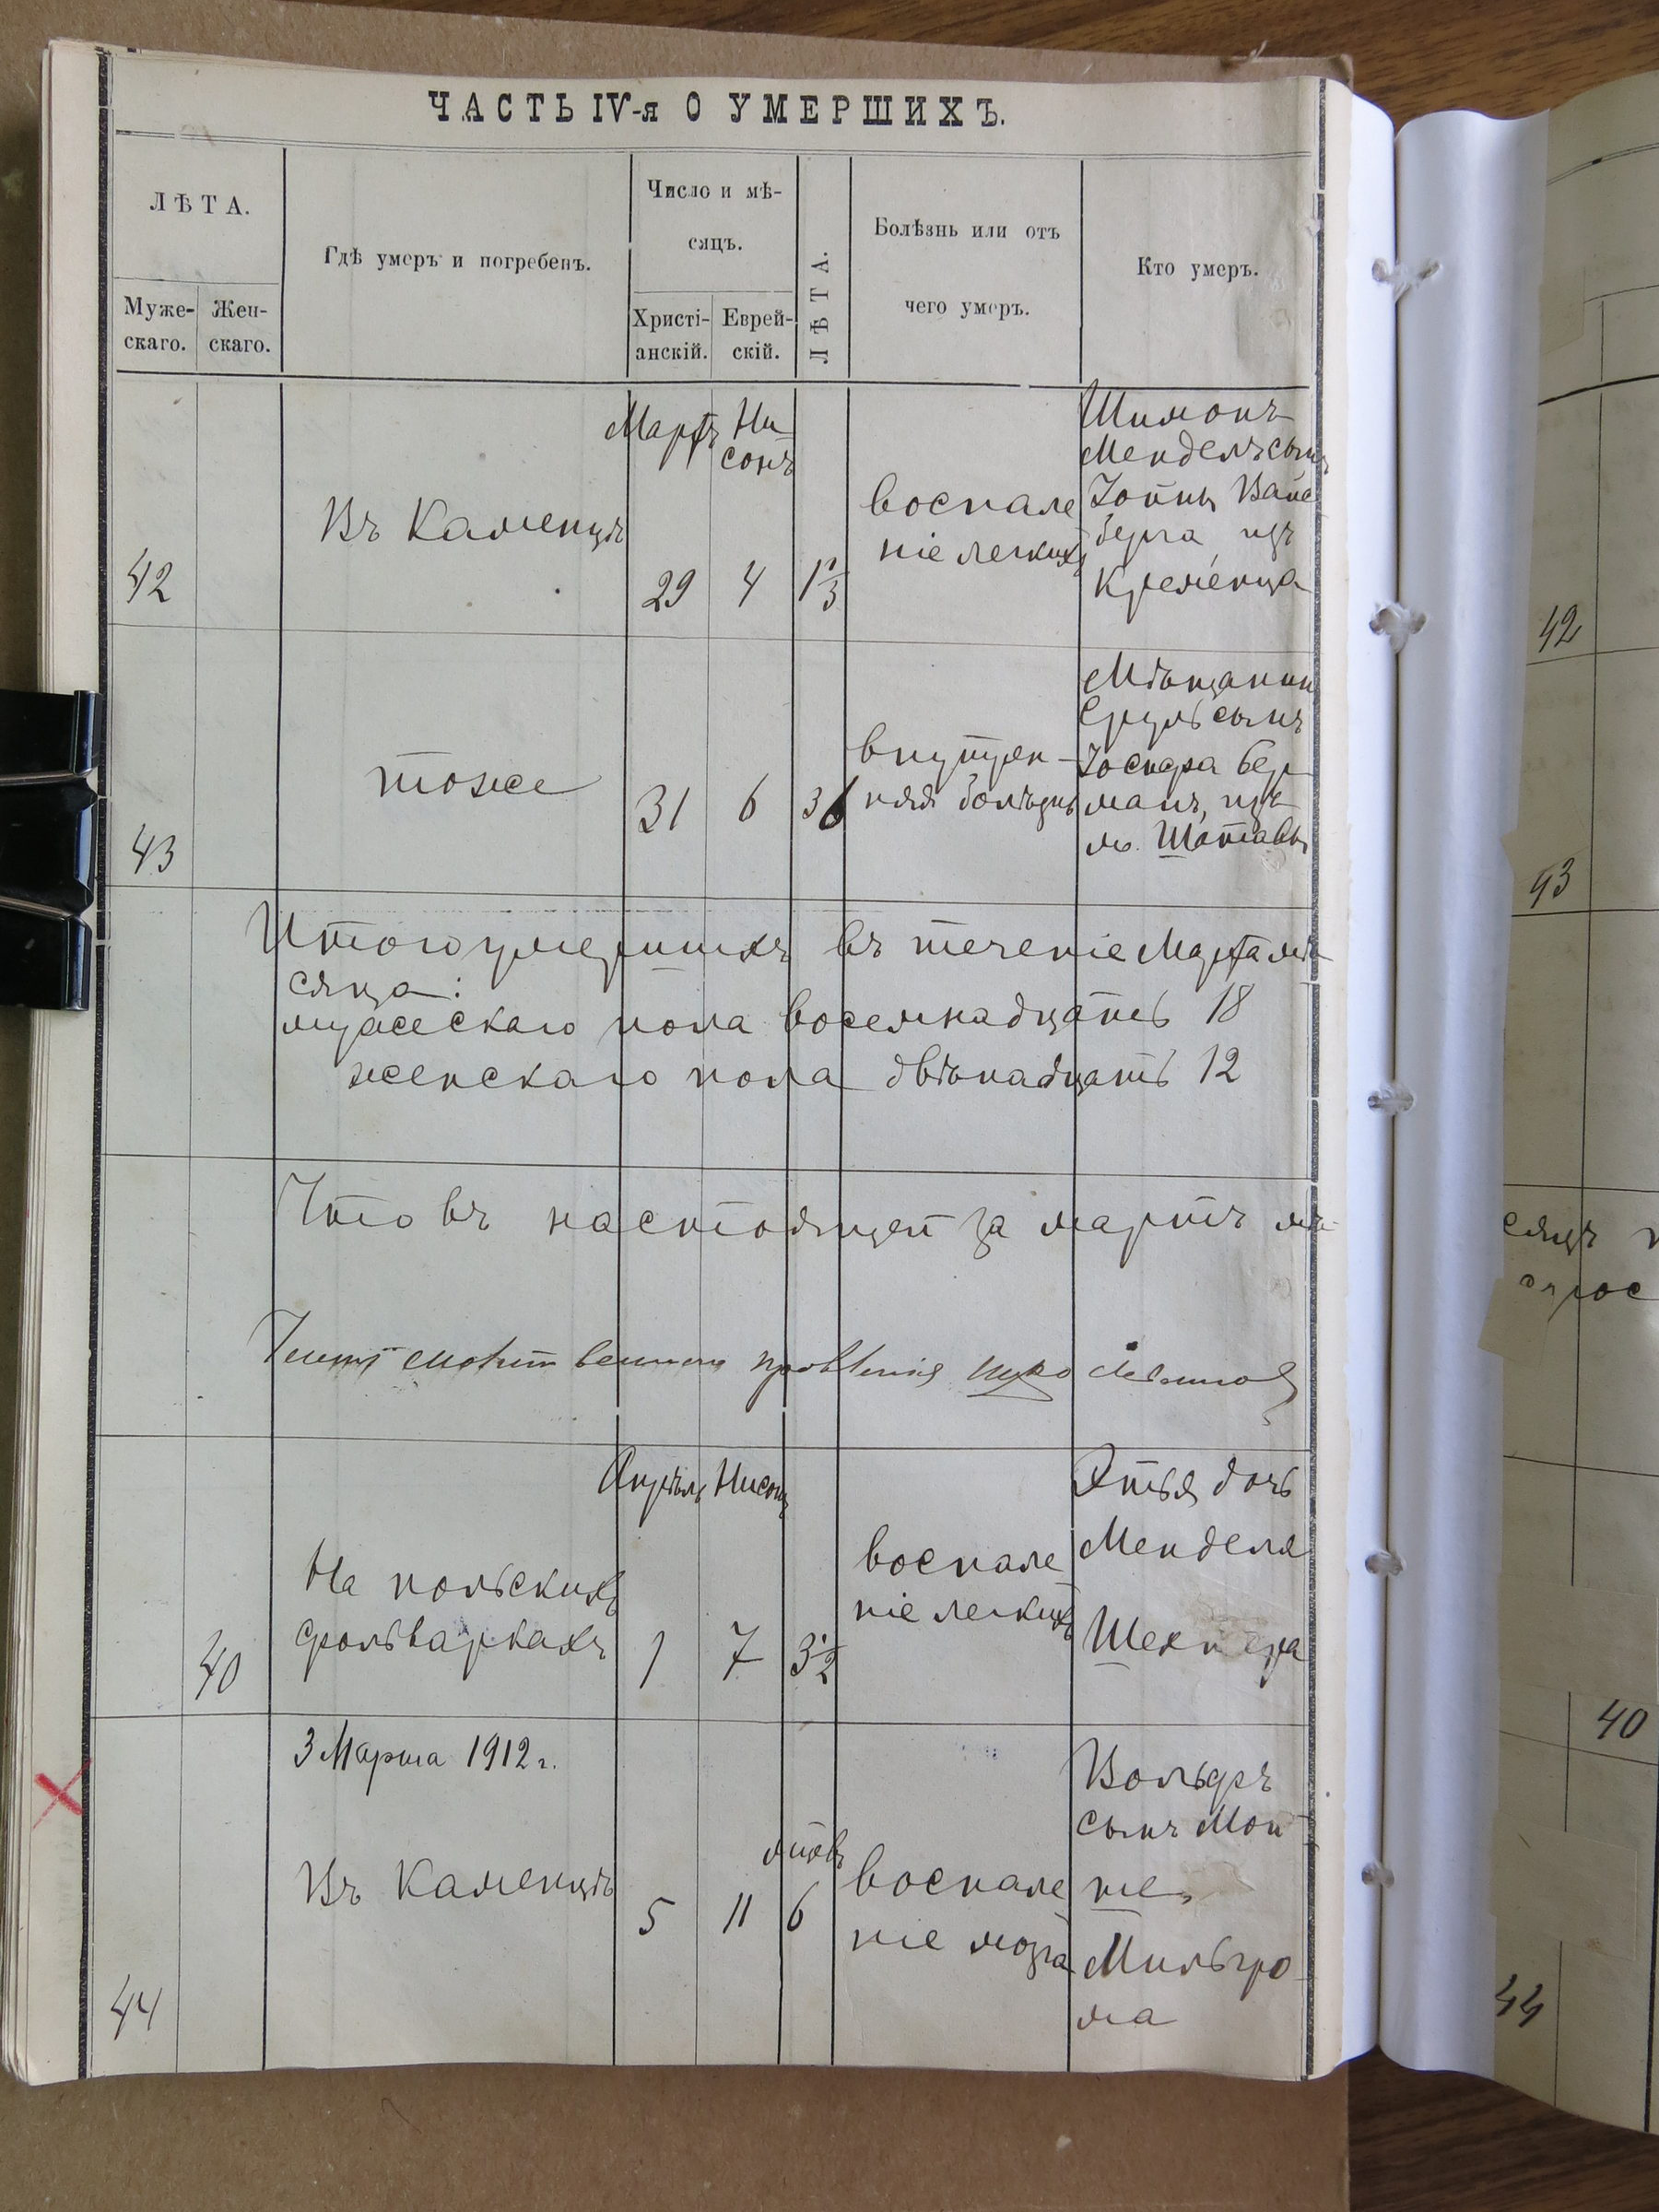 ЧАСТЬ IV-я О УМЕРШИХЪ.
ЛѢТА.
Муже-
скаго.
Жен-
скаго.
Гдѣ умеръ и погребенъ.
Число и мѣ-
сяцъ.
Христі-
анскій.
Еврей-
скій.
ЛѢТА.
Болѣзнь или отъ
чего умеръ.
Кто умеръ.
42
Въ Каменцѣ
Мартъ
29
Ни-
сонъ
4
1 1/3
воспале
ніе легкихъ
Шимонъ
Мендель сынъ
Іойны Вайс
берга изъ
Кременца
43
тоже
31
6
36
внутрен-
няя болѣзнь
Мѣщанин
Сруль сынъ
Іосифа Бер
манъ, изъ
м. Шатавы
Итого умершихъ въ теченіе Марта мѣ-
сяца:
мужескаго пола восемнадцать 18
женскаго пола двѣнадцать 12
Что въ настоящей за мартъ мѣ-
40
На польскихъ
фольваркахъ
Апрѣль
1
Нисонъ
7
3 1/2
воспале
ніе легкихъ
Этья дочь
Менделя
Шехтера
44
3 Марта 1912 г.
Въ Каменцѣ
5
11
лѣтъ
6
воспале
ніе мозга
Вольфъ
сынъ Мой
ше
Мильгро
ма
42
43
сяцъ
40
44